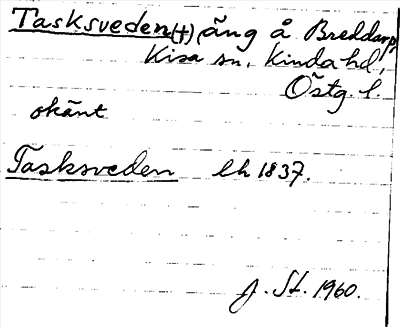 Tasksveden (+), äng å Breddarp,
Kisa sn, Kinda hd,
Östg. l.
okänt
Tasksveden lh 1837.
J. St. 1960.